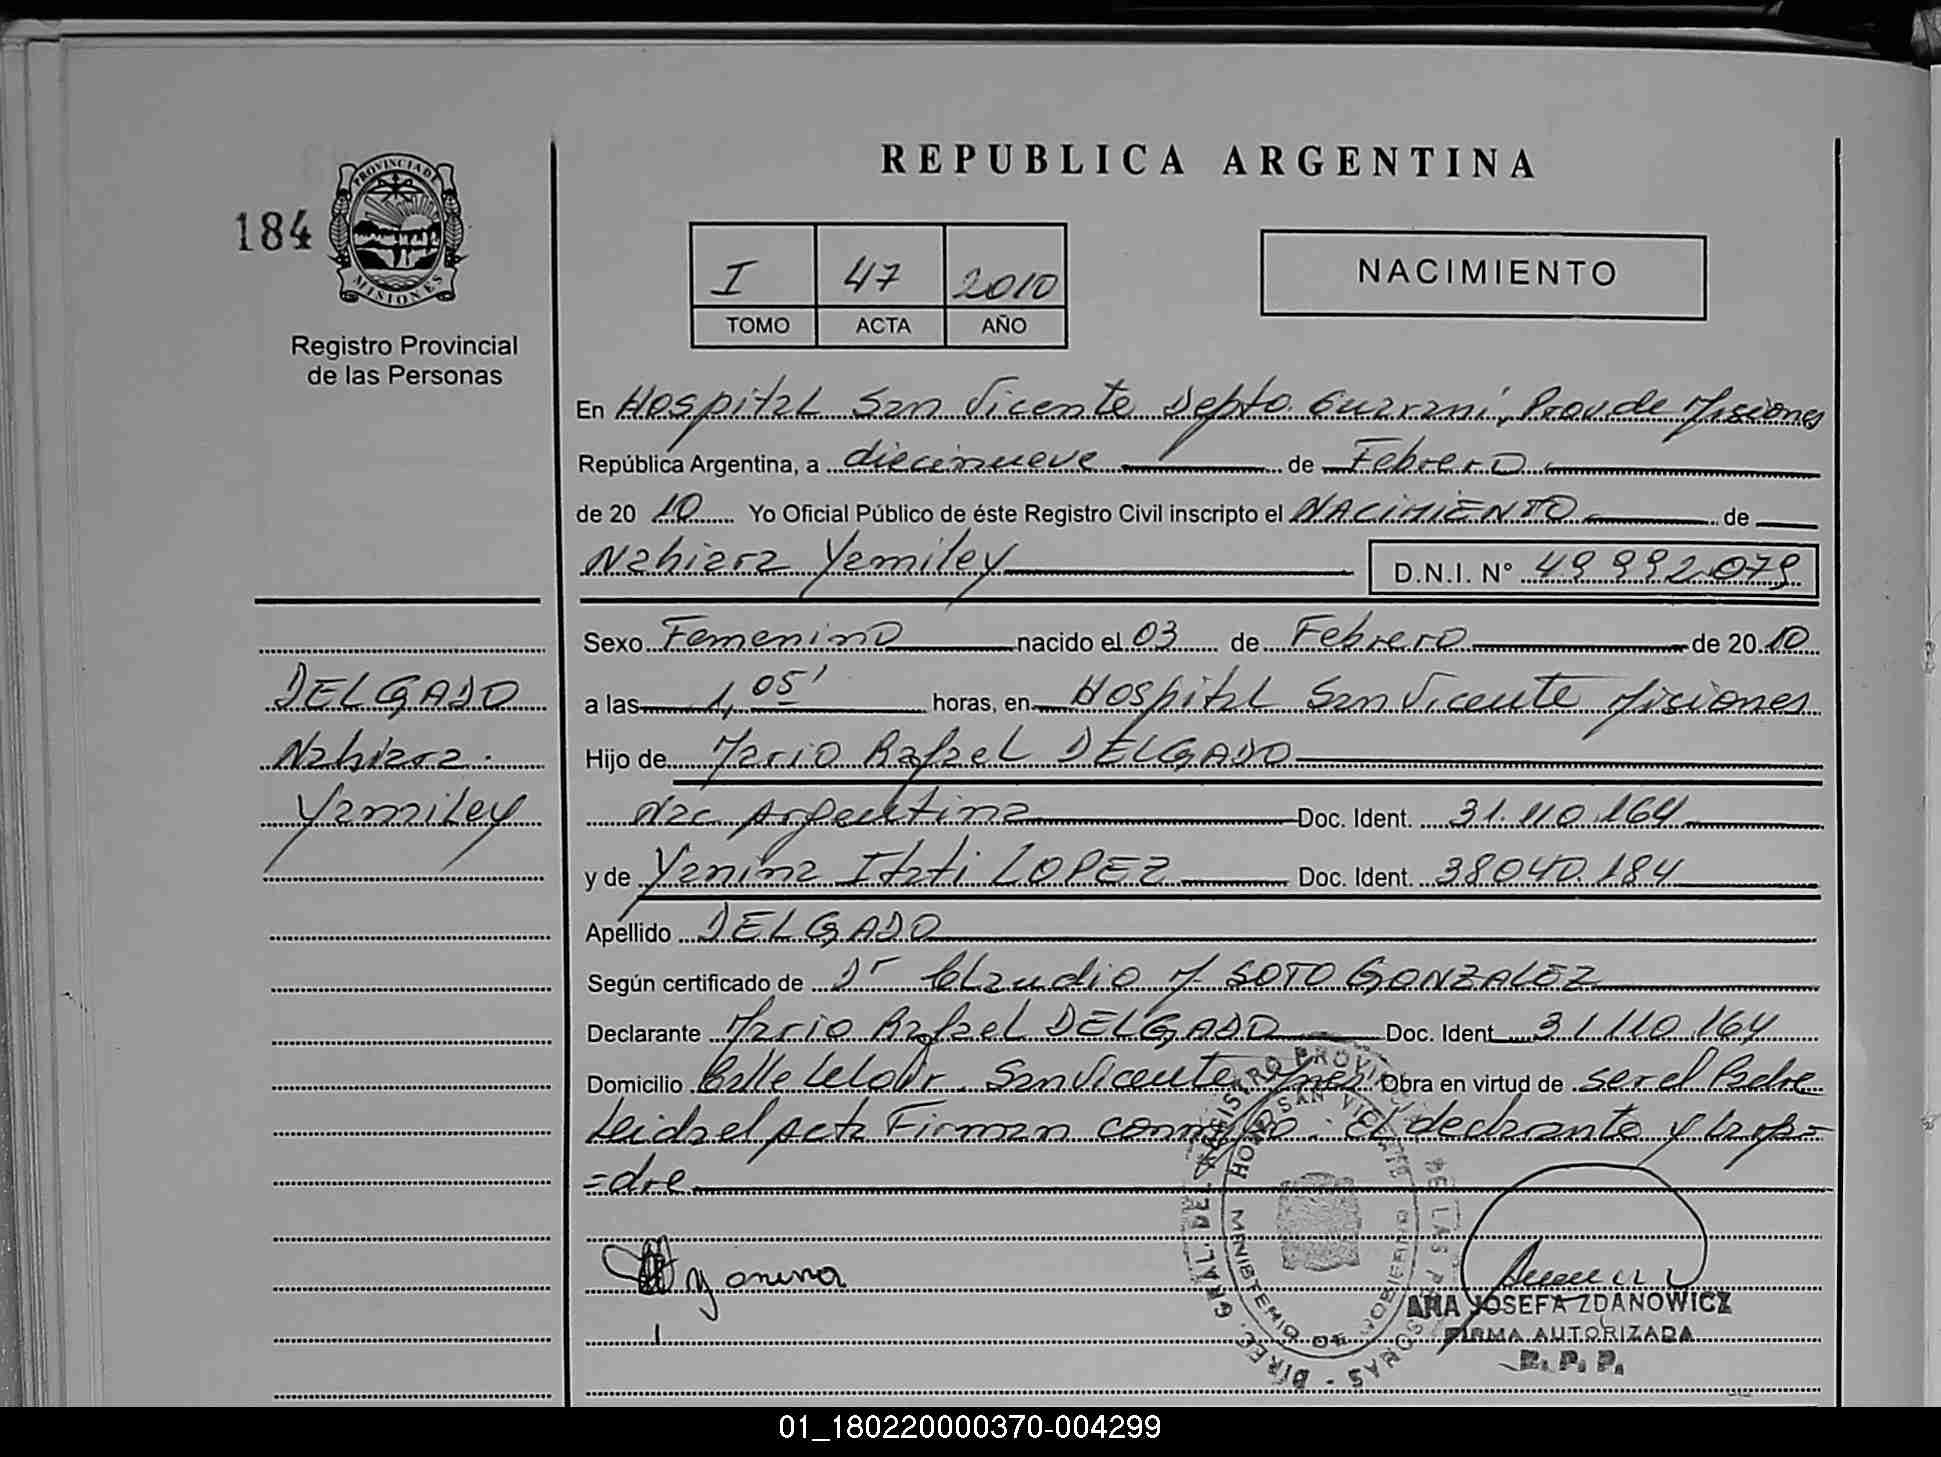 REPUBLICA ARGENTINA
184
PROVINCIA DE MISIONES
Registro Provincial
de las Personas
I 47 2010
TOMO ACTA AÑO
NACIMIENTO
En Hospital San Vicente Depto. Guaraní, Prov de Misiones
República Argentina, a diecinueve de Febrero
de 20 10 Yo Oficial Público de éste Registro Civil inscripto el NACIMIENTO de
Nahiara Yamiley D.N.I. N° 49 992 079
Sexo Femenino nacido el 03 de Febrero de 20 10
a las 1,05' horas, en Hospital San Vicente Misiones
Hijo de Mario Rafael DELGADO
Nac Argentina Doc. Ident. 31.110.164
y de Yanina Itati LOPEZ Doc. Ident. 38040.184
Apellido DELGADO
Según certificado de Dr Claudio M SOTO GONZALEZ
Declarante Mario Rafael DELGADO Doc. Ident 31 110 164
Domicilio Calle Leloir. San Vicente Mnes Obra en virtud de ser el Padre
Leida el Acta Firman conmigo. El declarante y la ma=
=dre
DELGADO
Nahiara.
Yamiley
yanina
DIREC. GRAL. DEL REGISTRO PROVINCIAL DE LAS PERSONAS
HOSP. SAN VICENTE
MINISTERIO DE GOBIERNO
ANA JOSEFA ZDANOWICZ
FIRMA AUTORIZADA
R. P. P.
01_180220000370-004299